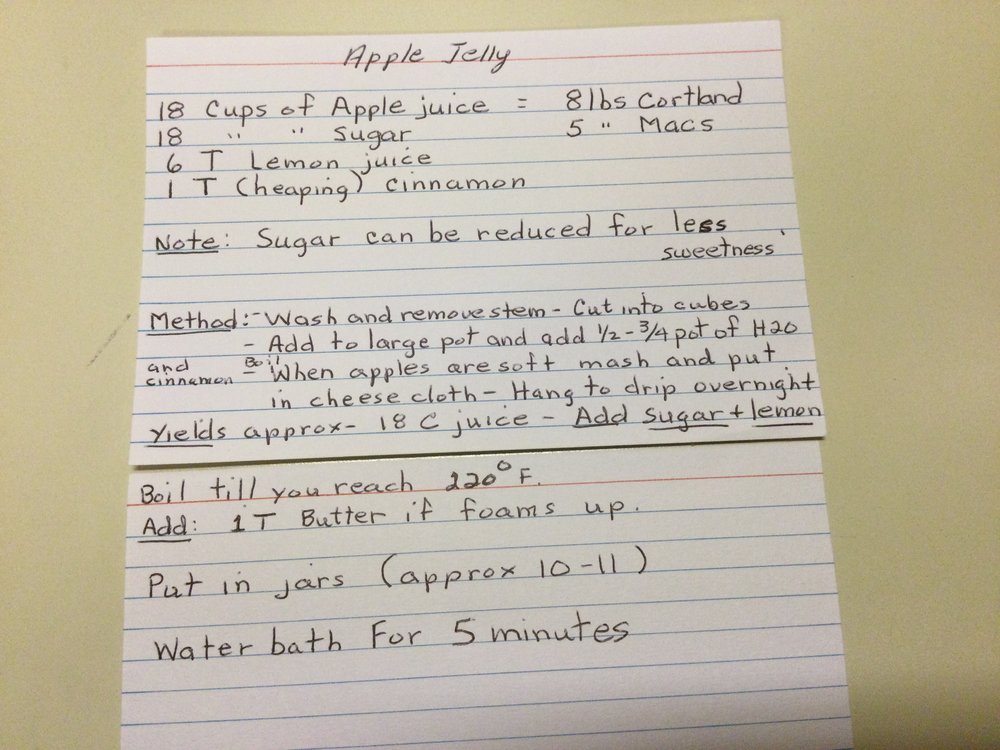 Apple Jelly
18 Cups of Apple juice = 8 lbs Cortland
18 " " Sugar 5 " Macs
6 T Lemon juice
1 T (heaping) cinnamon
Note: Sugar can be reduced for less
sweetness
Method:- Wash and remove stem - Cut into cubes
- Add to large pot and add 1/2 - 3/4 pot of H2O
and cinnamon - Boil - When apples are soft mash and put
in cheese cloth - Hang to drip overnight
Yields approx - 18 C juice - Add sugar + lemon
Boil till you reach 220° F.
Add: 1 T Butter if foams up.
Put in jars (approx 10-11)
Water bath For 5 minutes